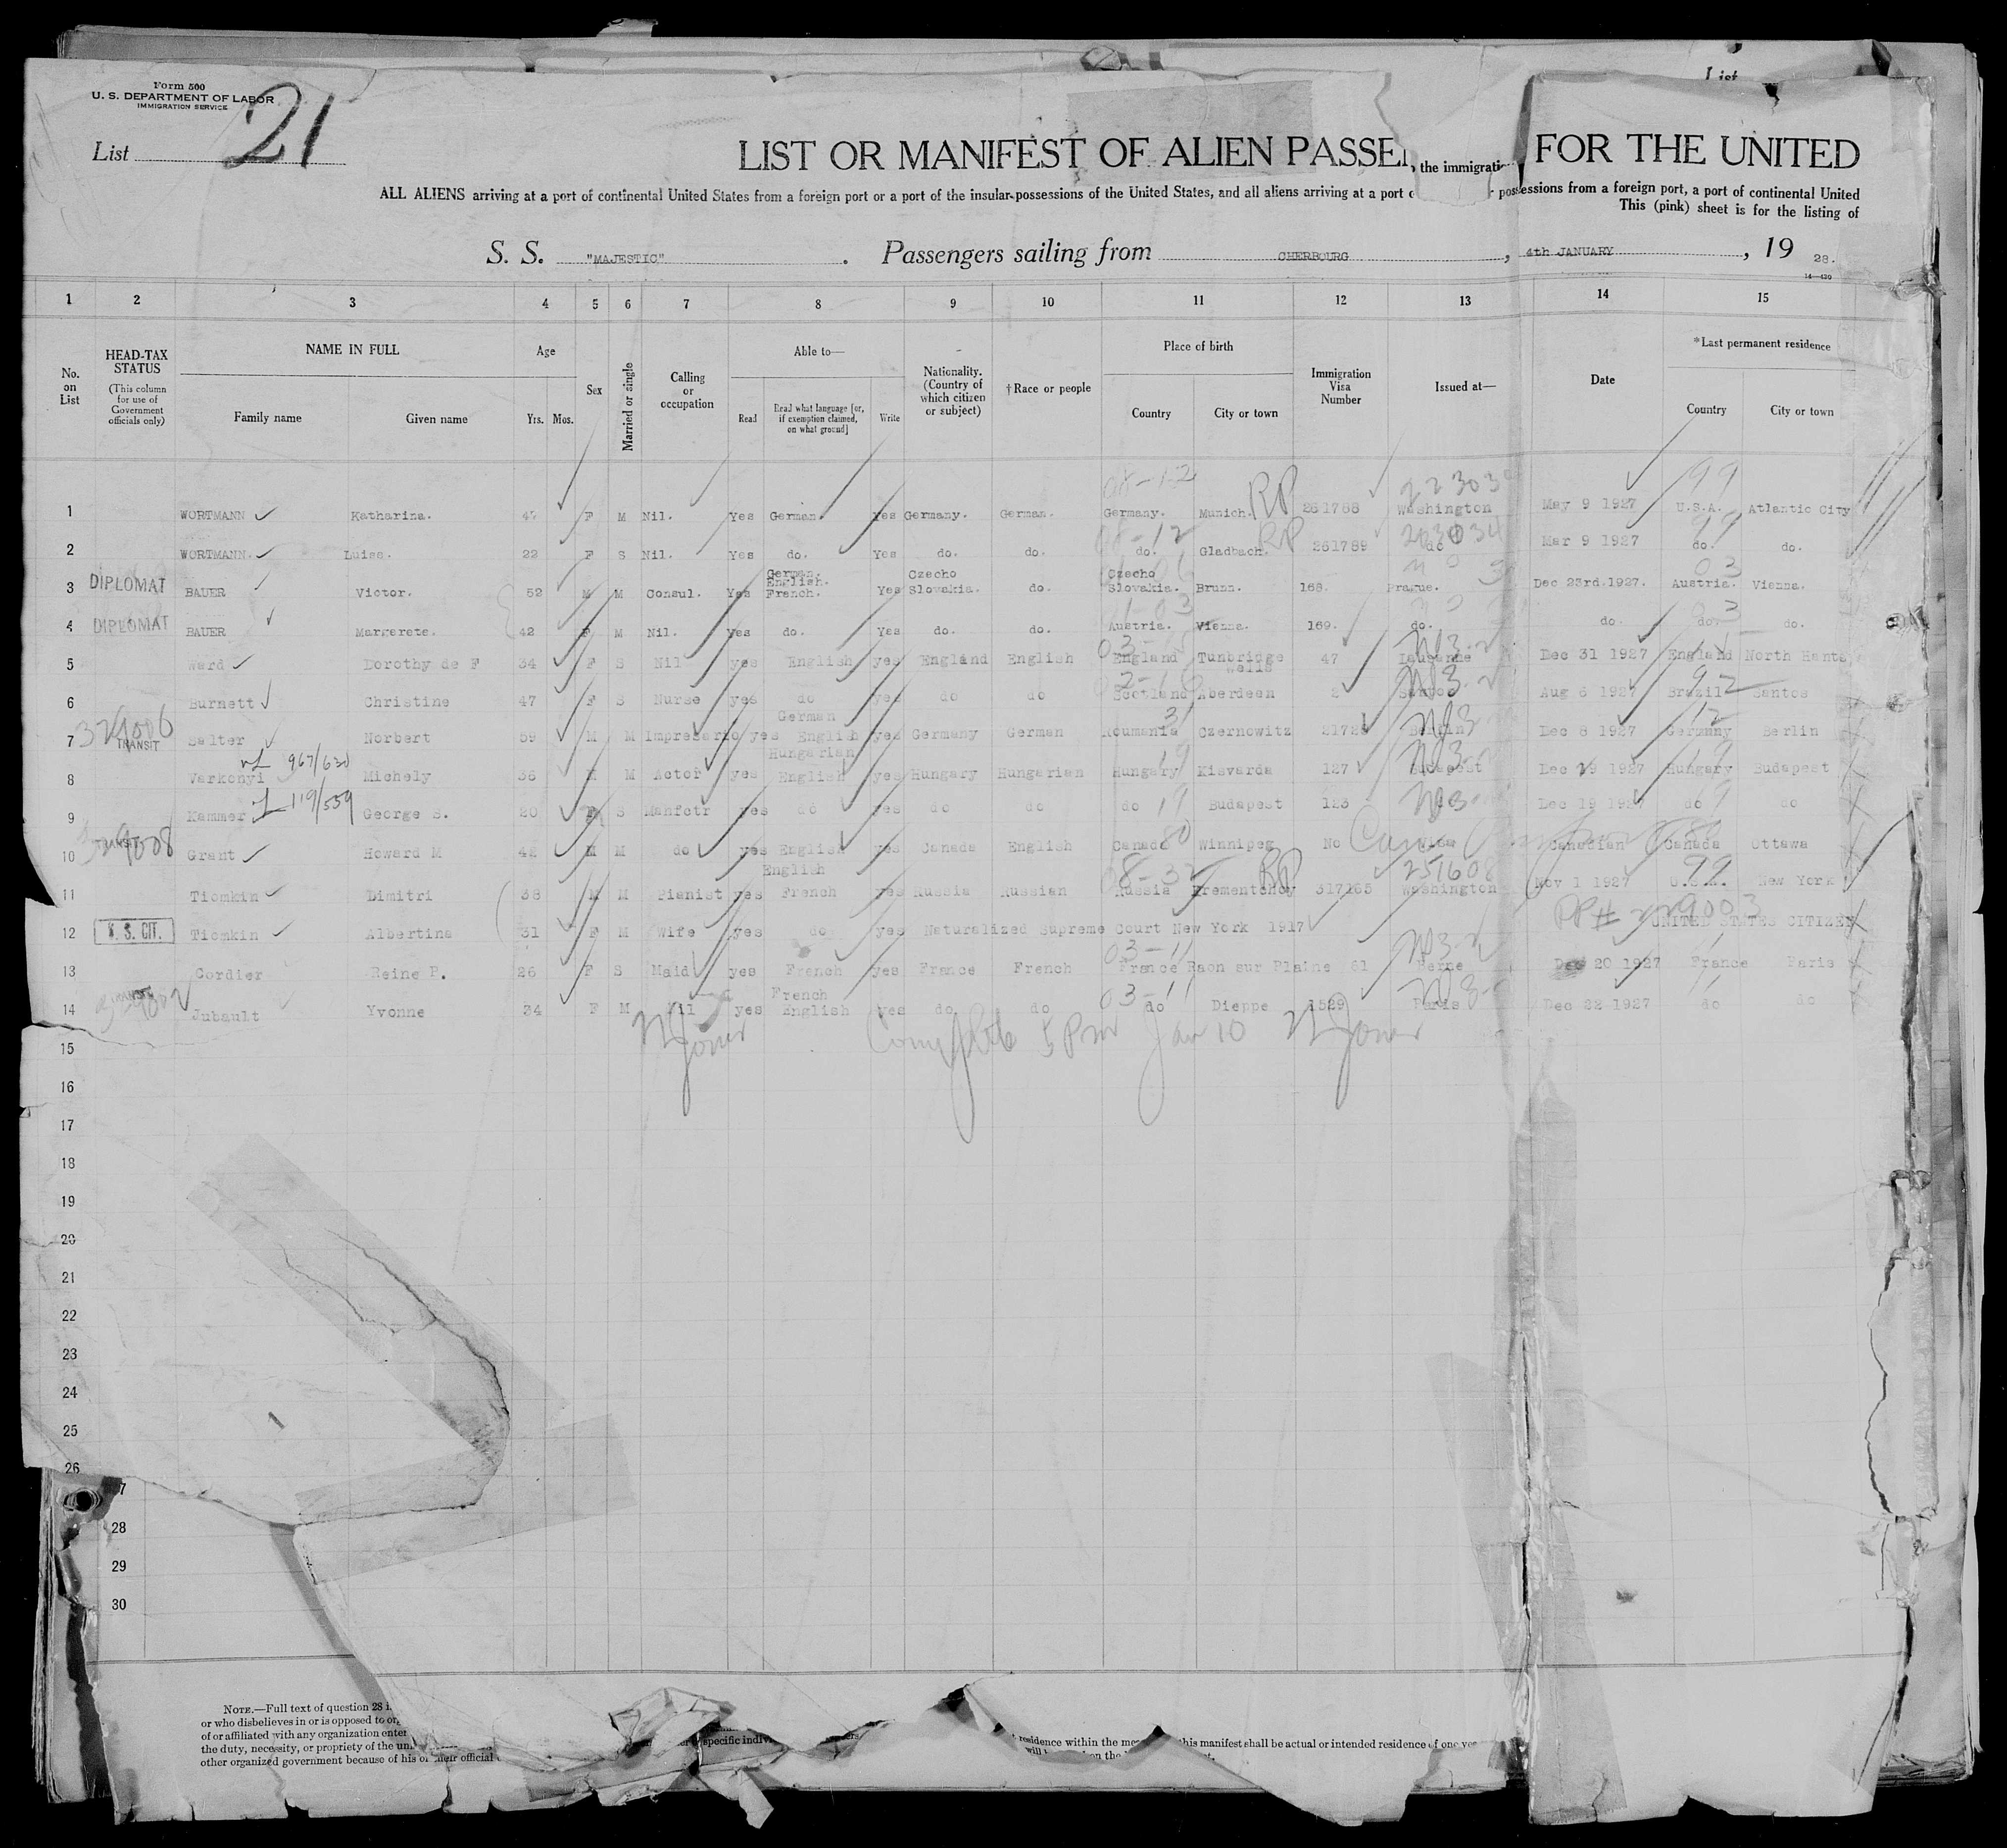 Form 500
U. S. DEPARTMENT OF LABOR
IMMIGRATION SERVICE
List 21
List
LIST OR MANIFEST OF ALIEN PASSE FOR THE UNITED
the immigratio
ALL ALIENS arriving at a port of continental United States from a foreign port or a port of the insular possessions of the United States, and all aliens arriving at a port possessions from a foreign port, a port of continental United
This (pink) sheet is for the listing of
S. S. "MAJESTIC". Passengers sailing from CHERBOURG, 4th JANUARY, 19 28.
14—430
1 2 3 4 5 6 7 8 9 10 11 12 13 14 15
No. on List
HEAD-TAX STATUS
(This column for use of Government officials only)
NAME IN FULL
Family name Given name
Age
Yrs. Mos.
Sex
Married or single
Calling or occupation
Able to—
Read Read what language [or, if exemption claimed, on what ground] Write
Nationality. (Country of which citizen or subject)
†Race or people
Place of birth
Country City or town
Immigration Visa Number
Issued at—
Date
*Last permanent residence
Country City or town
08-12 RP 99
1 WORTMANN Katharina. F M Nil. Yes German. Yes Germany. German. Germany. Munich. 261788 Washington May 9 1927 U.S.A. Atlantic City
08-12 RP 99
2 WORTMANN. Luise. 22 F S Nil. Yes do. Yes do. do. do. Gladbach. 261789 do Mar 9 1927 do. do.
3 DIPLOMAT BAUER Victor. 52 M M Consul. Yes German. English. French. Yes Czecho Slovakia. do. Czecho Slovakia. Brunn. 168. Prague. Dec 23rd.1927. Austria. Vienna.
4 DIPLOMAT BAUER Margerete. 42 F M Nil. yes do. Yes do. do. Austria. Vienna. 169. do. do. do. do.
5 Ward Dorothy de F 34 F S Nil yes English yes England English England Tunbridge Wells 47 Lausanne Dec 31 1927 England North Hants
6 Burnett Christine 47 F S Nurse yes do yes do do Scotland Aberdeen 2 Santos Aug 6 1927 Brazil Santos
7 TRANSIT Salter Norbert 59 M M Impresario yes German English yes Germany German Roumania Czernowitz Berlin Dec 8 1927 Germany Berlin
967/630
8 Varkonyi Michely 36 M M Actor yes Hungarian English yes Hungary Hungarian Hungary Kisvarda 127 Budapest Dec 19 1927 Hungary Budapest
119/559
9 Kammer George S. 20 S Manfctr yes do yes do do do Budapest 123 Dec 19 1927 do do
10 Grant Howard M 42 M M do yes English yes Canada English Canada Winnipeg No Visa Canadian Canada Ottawa
RP 251608 99
11 Tiomkin Dimitri 38 M M Pianist yes English French yes Russia Russian Russia Krementchoy 317165 Washington Nov 1 1927 U.S.A. New York
PP# 229003
12 U. S. CIT. Tiomkin Albertina 31 F M Wife yes do yes Naturalized Supreme Court New York 1917 UNITED STATES CITIZEN
03-11
13 Cordier Reine P. 26 F S Maid yes French yes France French France Raon sur Plaine 61 Berne Dec 20 1927 France Paris
03-11
14 TRANSIT Jubault Yvonne 34 F M Nil yes French English yes do do do Dieppe 1529 Paris Dec 22 1927 do do
Complete 5 PM Jan 10
15
16
17
18
19
20
21
22
23
24
25
26
7
28
29
30
NOTE.—Full text of question 28 i
or who disbelieves in or is opposed to org
of or affiliated with any organization enter
the duty, necessity, or propriety of the un
other organized government because of his or their official
specific indiv
residence within the this manifest shall be actual or intended residence of one
will on the